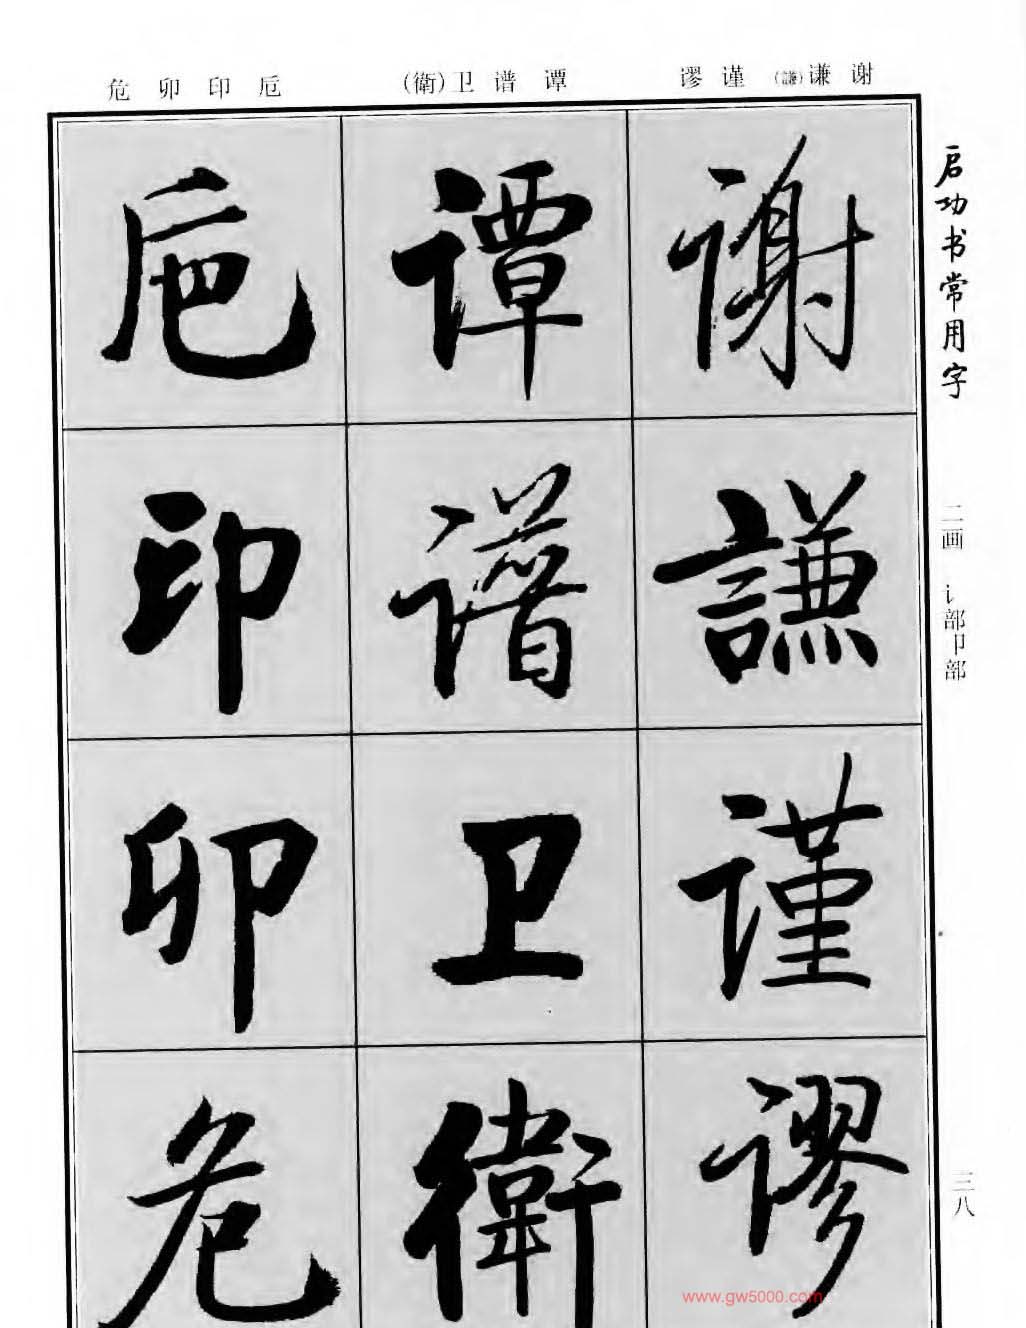 谢谦(謙)谨谬
谭谱卫(衛)
卮印卯危
启功书常用字
二画 讠部卩部
三八
谢謙谨谬
谭谱卫衛
卮印卯危
www.gw5000.com